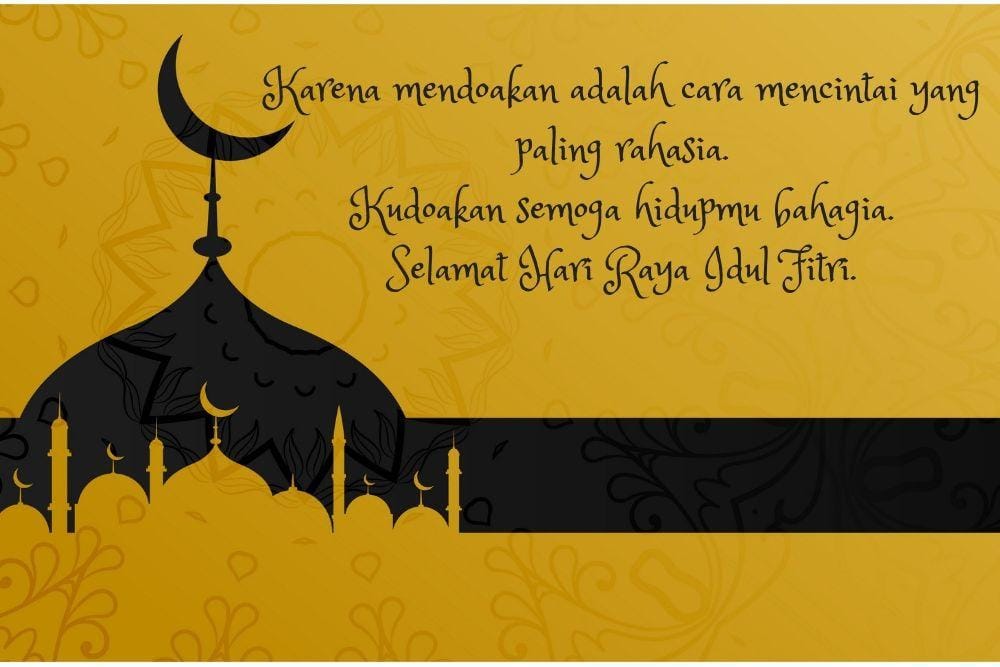 Karena mendoakan adalah cara mencintai yang
paling rahasia.
Kudoakan semoga hidupmu bahagia.
Selamat Hari Raya Idul Fitri.